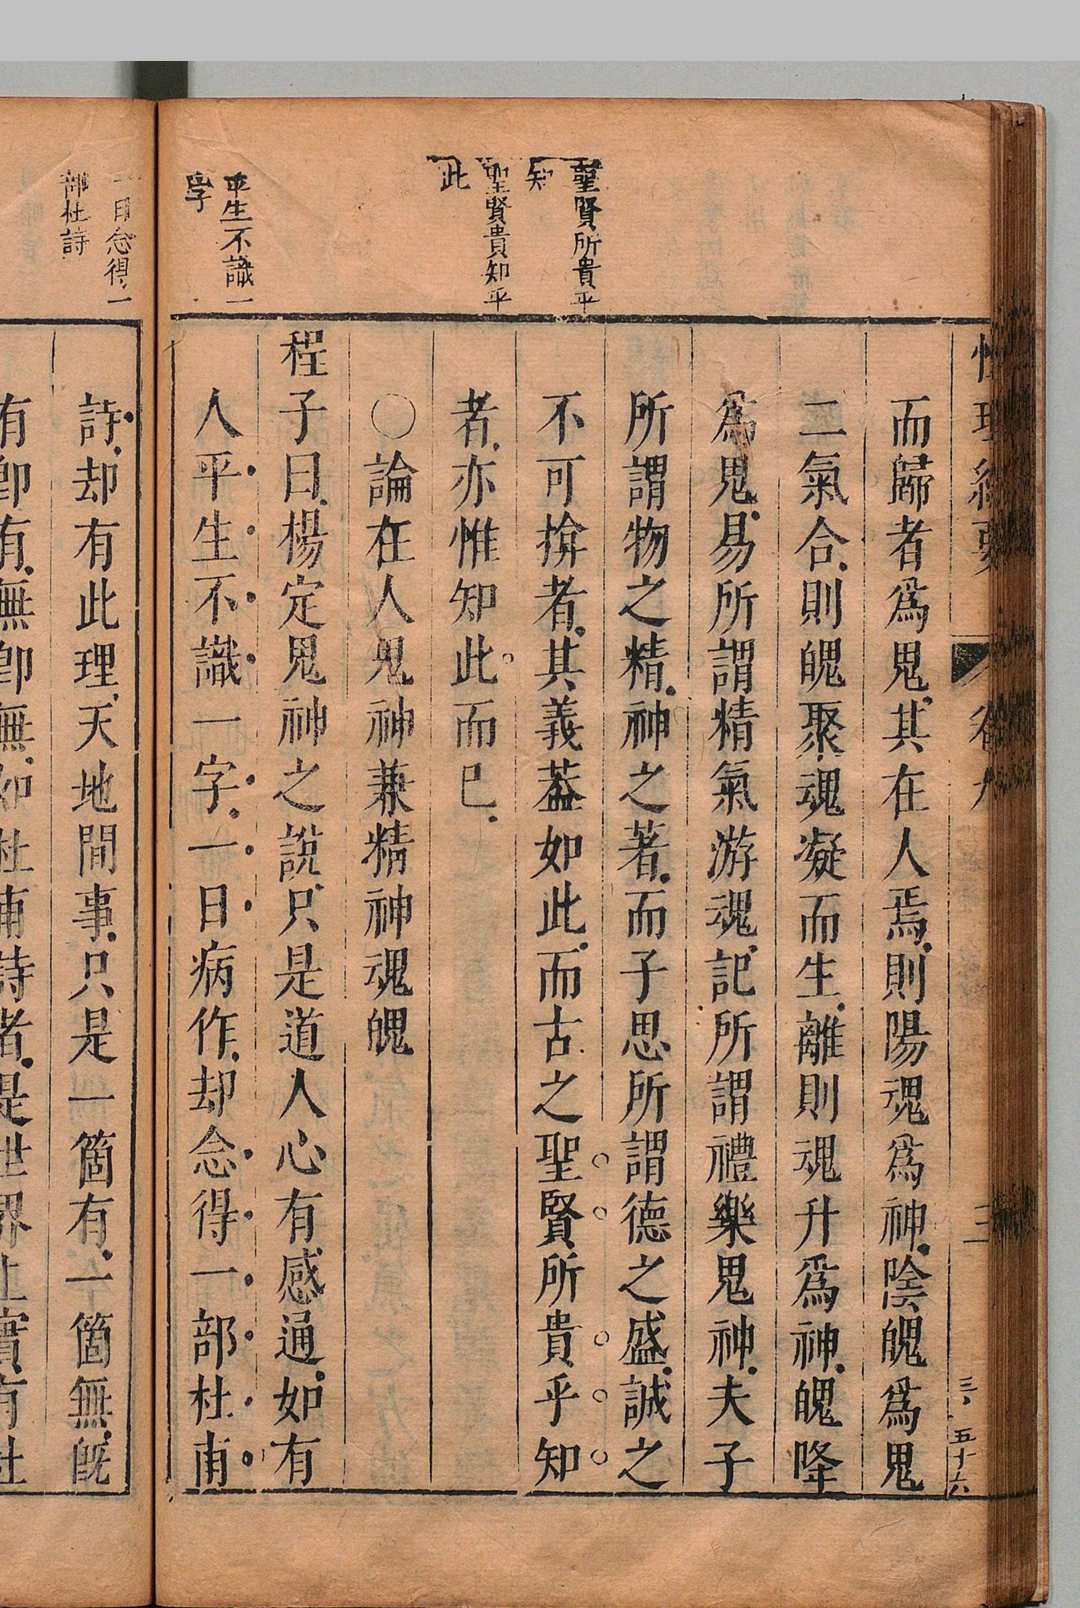 性理綜要
卷九
三
三、五十六
聖賢所貴乎
知
聖賢貴知乎
此
平生不識一
字
一日念得一
部杜詩
而歸者爲鬼其在人焉則陽魂爲神陰魄爲鬼
二氣合則魄聚魂凝而生離則魂升爲神魄降
爲鬼易所謂精氣游魂記所謂禮樂鬼神夫子
所謂物之精神之著而子思所謂德之盛誠之
不可揜者其義葢如此而古之聖賢所貴乎知
者亦惟知此而已
○論在人鬼神兼精神魂魄
程子曰楊定鬼神之說只是道人心有感通如有
人平生不識一字一日病作却念得一部杜甫
詩却有此理天地間事只是一箇有一箇無旣
有卽有無卽無如杜甫詩者是世界上實有杜